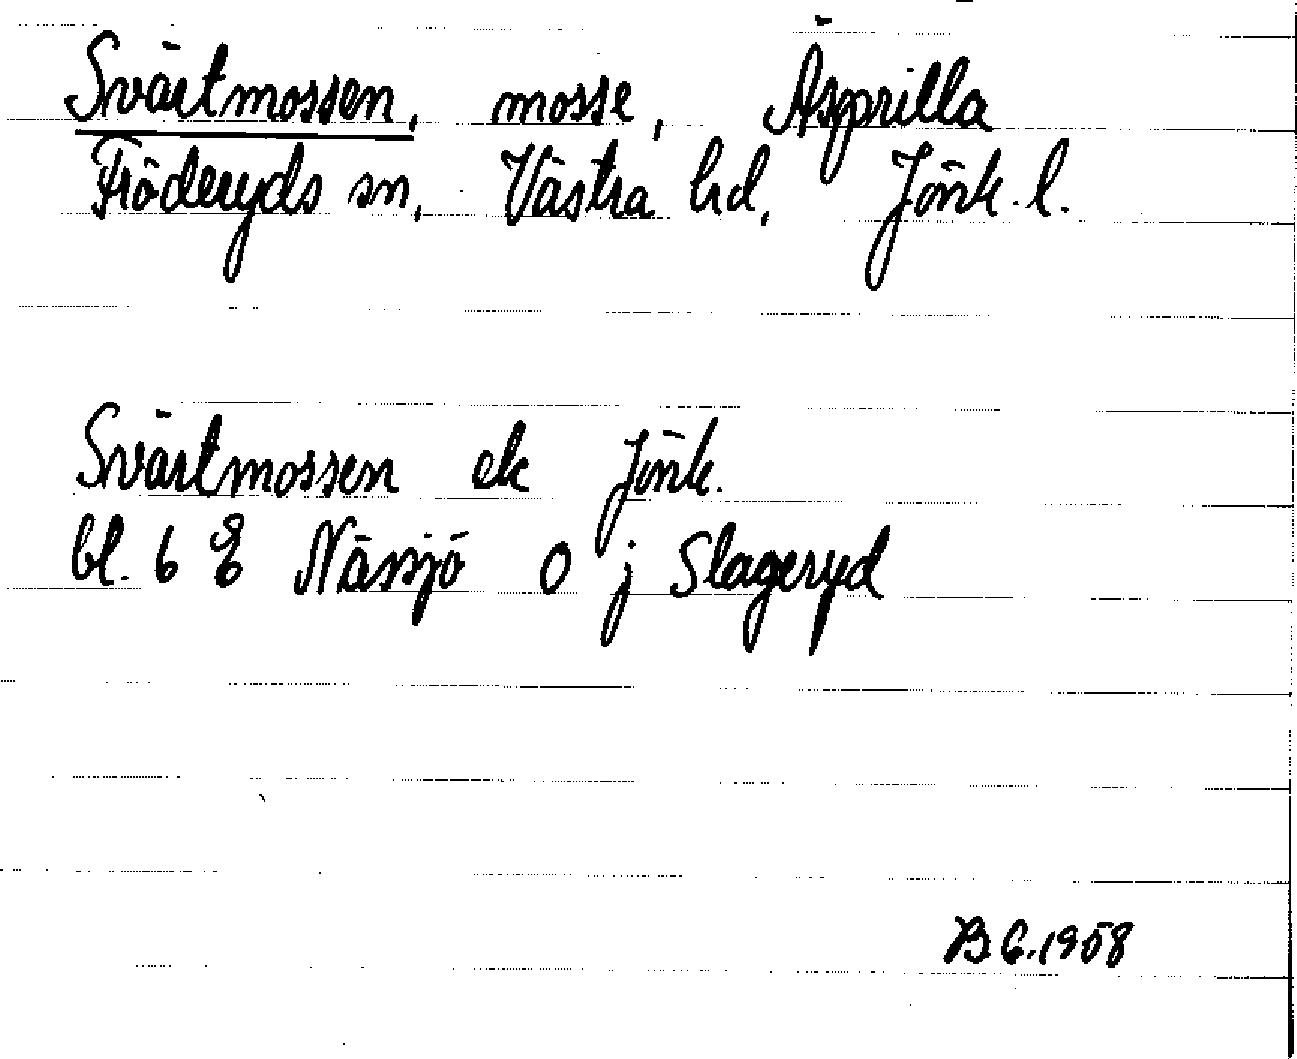 Svärtmossen, mosse, Äsprilla
Fröderyds sn, Västra hd, Jönk. l.
Svärtmossen ek Jönk.
bl. 6 E Nässjö O j Slageryd
B G. 1958